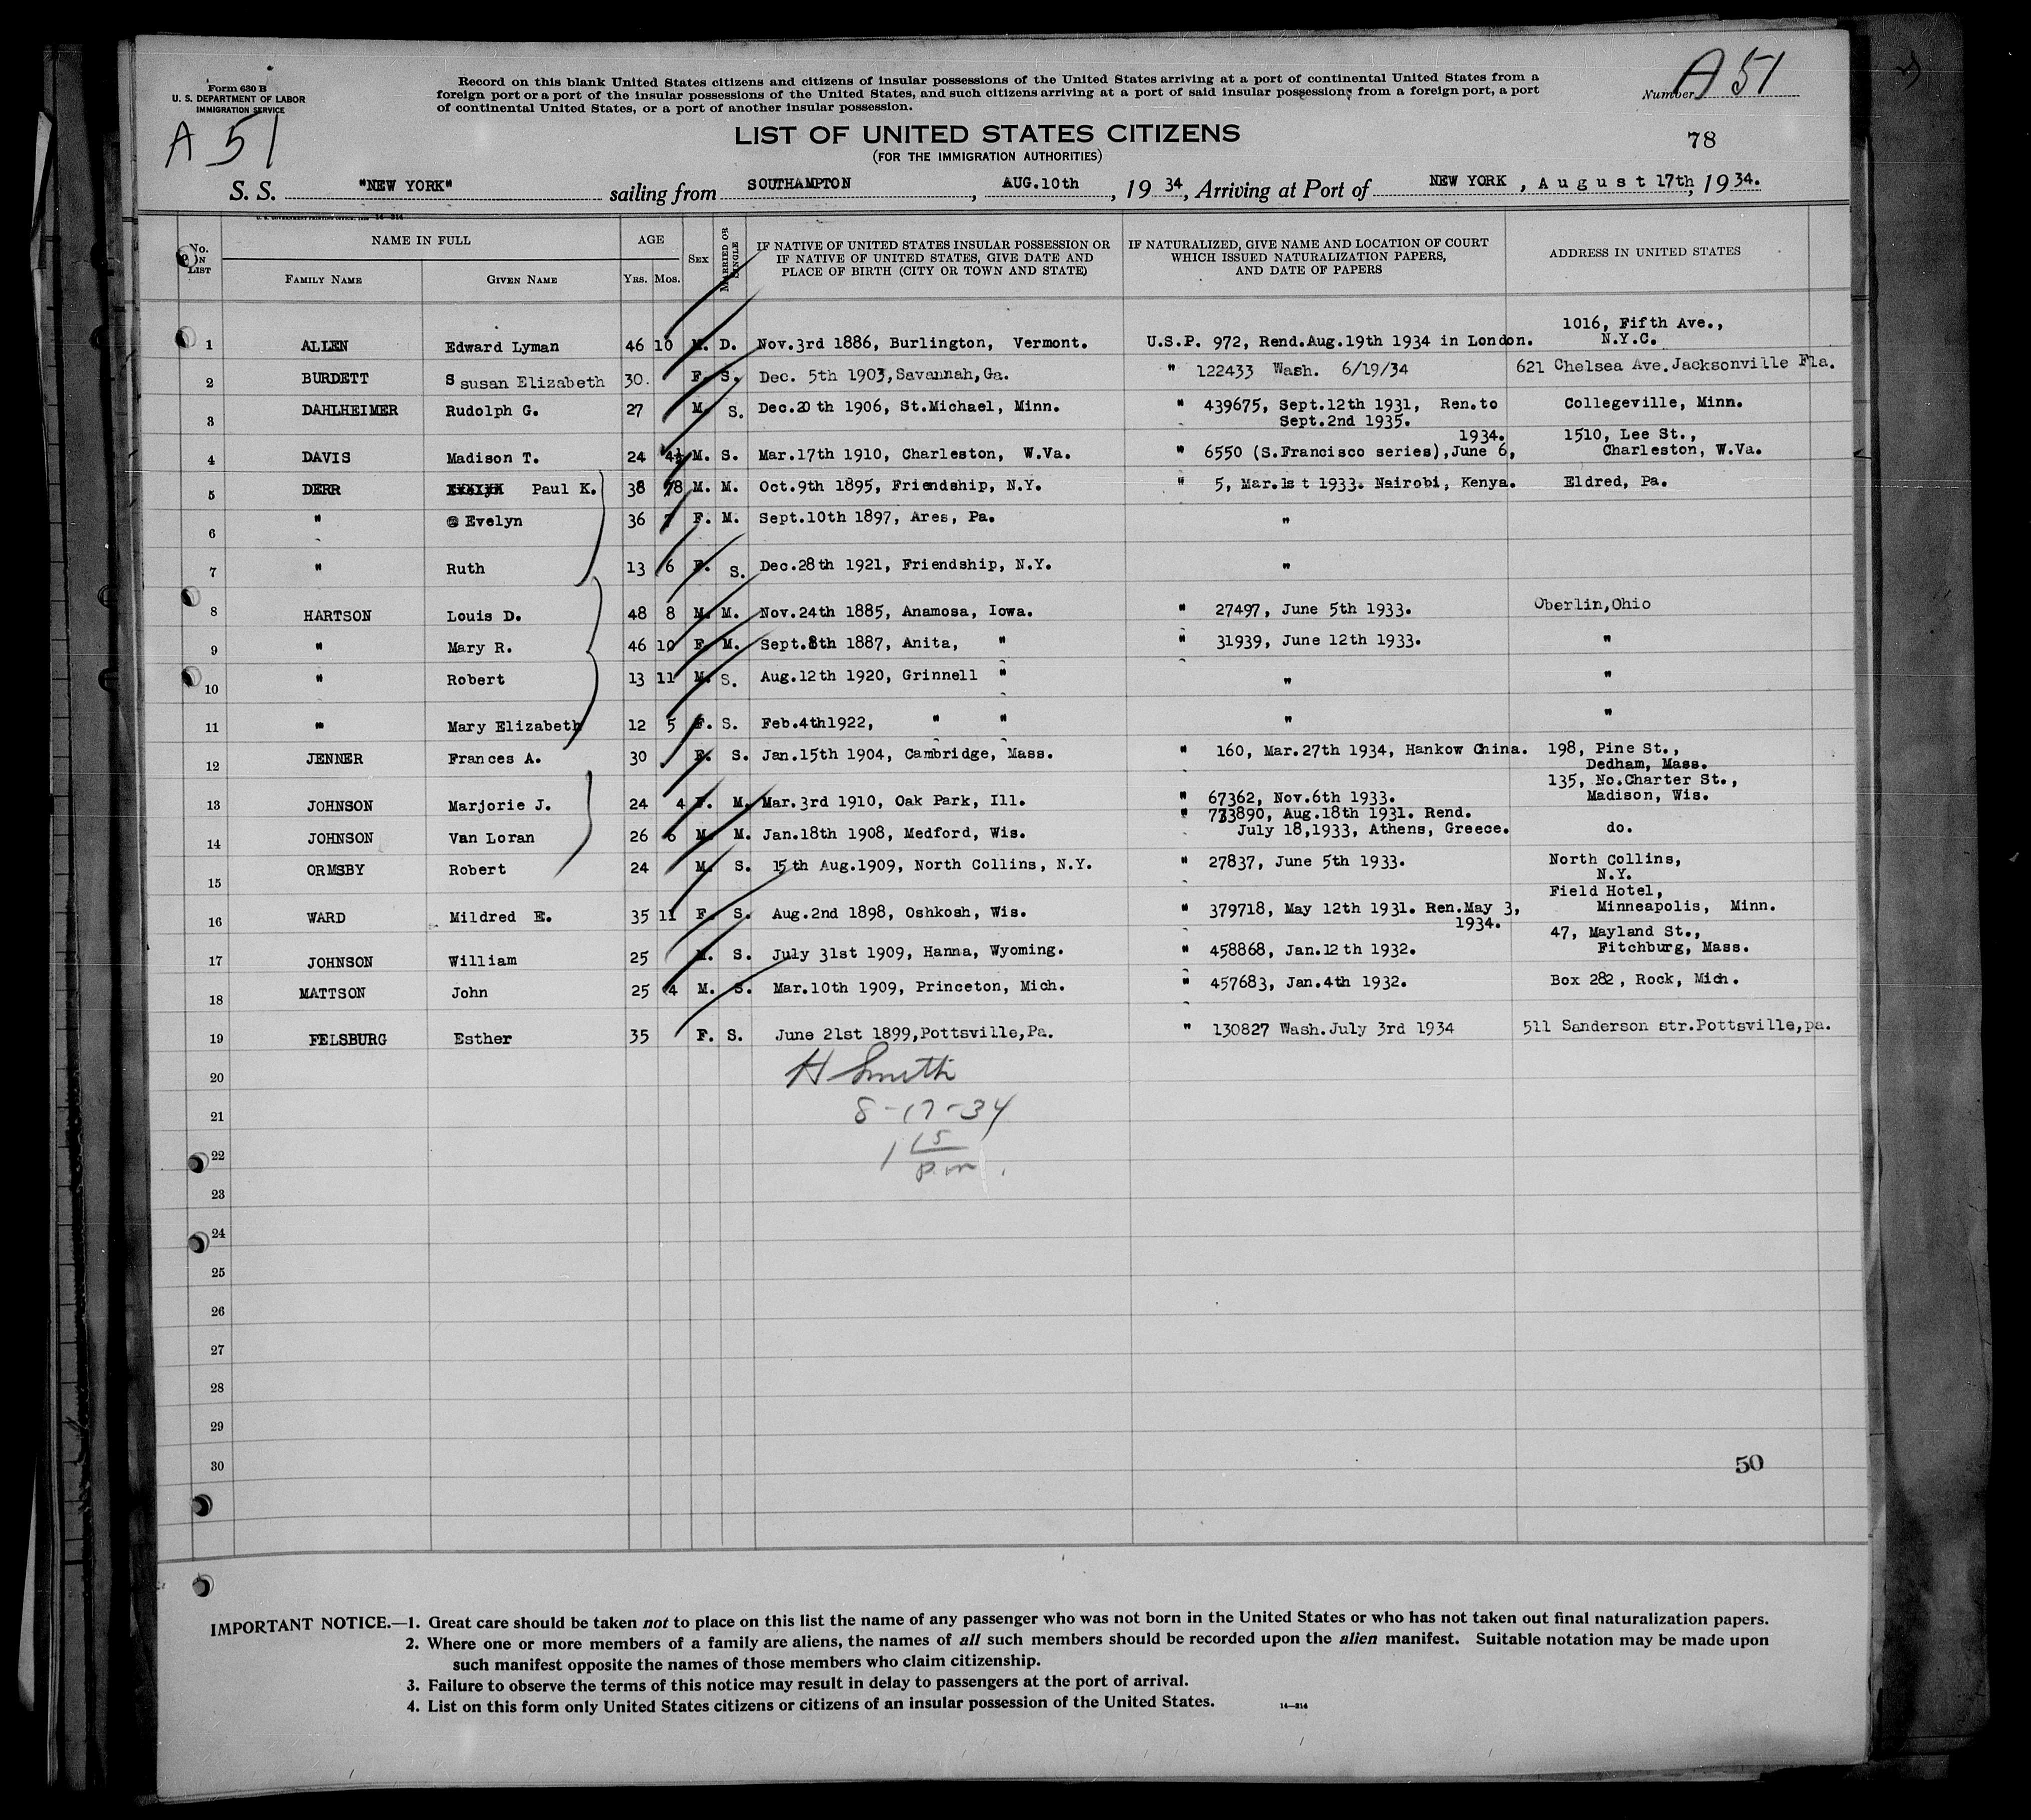 Form 630 B
U. S. DEPARTMENT OF LABOR
IMMIGRATION SERVICE
A 51
Record on this blank United States citizens and citizens of insular possessions of the United States arriving at a port of continental United States from a
foreign port or a port of the insular possessions of the United States, and such citizens arriving at a port of said insular possessions from a foreign port, a port
of continental United States, or a port of another insular possession.
Number A 51
LIST OF UNITED STATES CITIZENS
(FOR THE IMMIGRATION AUTHORITIES)
78
S. S. "NEW YORK" sailing from SOUTHAMPTON, AUG.10th, 19 34, Arriving at Port of NEW YORK, August 17th, 19 34.
U. S. GOVERNMENT PRINTING OFFICE 14-314
No. ON LIST NAME IN FULL AGE SEX MARRIED OR SINGLE IF NATIVE OF UNITED STATES INSULAR POSSESSION OR IF NATIVE OF UNITED STATES, GIVE DATE AND PLACE OF BIRTH (CITY OR TOWN AND STATE) IF NATURALIZED, GIVE NAME AND LOCATION OF COURT WHICH ISSUED NATURALIZATION PAPERS, AND DATE OF PAPERS ADDRESS IN UNITED STATES
FAMILY NAME GIVEN NAME YRS. MOS.
1 ALLEN Edward Lyman 46 10 M. D. Nov.3rd 1886, Burlington, Vermont. U.S.P. 972, Rend.Aug.19th 1934 in London. 1016, Fifth Ave., N.Y.C.
2 BURDETT S susan Elizabeth 30. F. S. Dec. 5th 1903,Savannah,Ga. " 122433 Wash. 6/19/34 621 Chelsea Ave.Jacksonville Fla.
3 DAHLHEIMER Rudolph G. 27 M. S. Dec.20th 1906, St.Michael, Minn. " 439675, Sept.12th 1931, Ren.to Sept.2nd 1935. Collegeville, Minn.
4 DAVIS Madison T. 24 4½ M. S. Mar.17th 1910, Charleston, W.Va. " 6550 (S.Francisco series),June 6, 1934. 1510, Lee St., Charleston, W.Va.
5 DERR Paul K. 38 8 M. M. Oct.9th 1895, Friendship, N.Y. " 5, Mar.1st 1933. Nairobi, Kenya. Eldred, Pa.
6 " Evelyn 36 7 F. M. Sept.10th 1897, Ares, Pa. "
7 " Ruth 13 6 F. S. Dec.28th 1921, Friendship, N.Y. "
8 HARTSON Louis D. 48 8 M. M. Nov.24th 1885, Anamosa, Iowa. " 27497, June 5th 1933. Oberlin,Ohio
9 " Mary R. 46 10 F. M. Sept.8th 1887, Anita, " " 31939, June 12th 1933. "
10 " Robert 13 11 M. S. Aug.12th 1920, Grinnell " " "
11 " Mary Elizabeth 12 5 F. S. Feb.4th1922, " " " "
12 JENNER Frances A. 30 F. S. Jan.15th 1904, Cambridge, Mass. " 160, Mar.27th 1934, Hankow China. 198, Pine St., Dedham, Mass.
13 JOHNSON Marjorie J. 24 4 F. M. Mar.3rd 1910, Oak Park, Ill. " 67362, Nov.6th 1933. 135, No.Charter St., Madison, Wis.
14 JOHNSON Van Loran 26 6 M. M. Jan.18th 1908, Medford, Wis. " 773890, Aug.18th 1931. Rend. July 18,1933, Athens, Greece. do.
15 ORMSBY Robert 24 M. S. 15th Aug.1909, North Collins, N.Y. " 27837, June 5th 1933. North Collins, N.Y.
16 WARD Mildred E. 35 11 F. S. Aug.2nd 1898, Oshkosh, Wis. " 379718, May 12th 1931. Ren.May 3, 1934. Field Hotel, Minneapolis, Minn.
17 JOHNSON William 25 M. S. July 31st 1909, Hanna, Wyoming. " 458868, Jan.12th 1932. 47, Mayland St., Fitchburg, Mass.
18 MATTSON John 25 4 M. S. Mar.10th 1909, Princeton, Mich. " 457683, Jan.4th 1932. Box 282, Rock, Mich.
19 FELSBURG Esther 35 F. S. June 21st 1899,Pottsville,Pa. " 130827 Wash.July 3rd 1934 511 Sanderson str.Pottsville,pa.
20 H Smith
21 8-17-34
22 1 15 p.m.
23
24
25
26
27
28
29
30
50
IMPORTANT NOTICE.—1. Great care should be taken not to place on this list the name of any passenger who was not born in the United States or who has not taken out final naturalization papers.
2. Where one or more members of a family are aliens, the names of all such members should be recorded upon the alien manifest. Suitable notation may be made upon
such manifest opposite the names of those members who claim citizenship.
3. Failure to observe the terms of this notice may result in delay to passengers at the port of arrival.
4. List on this form only United States citizens or citizens of an insular possession of the United States.
14-314